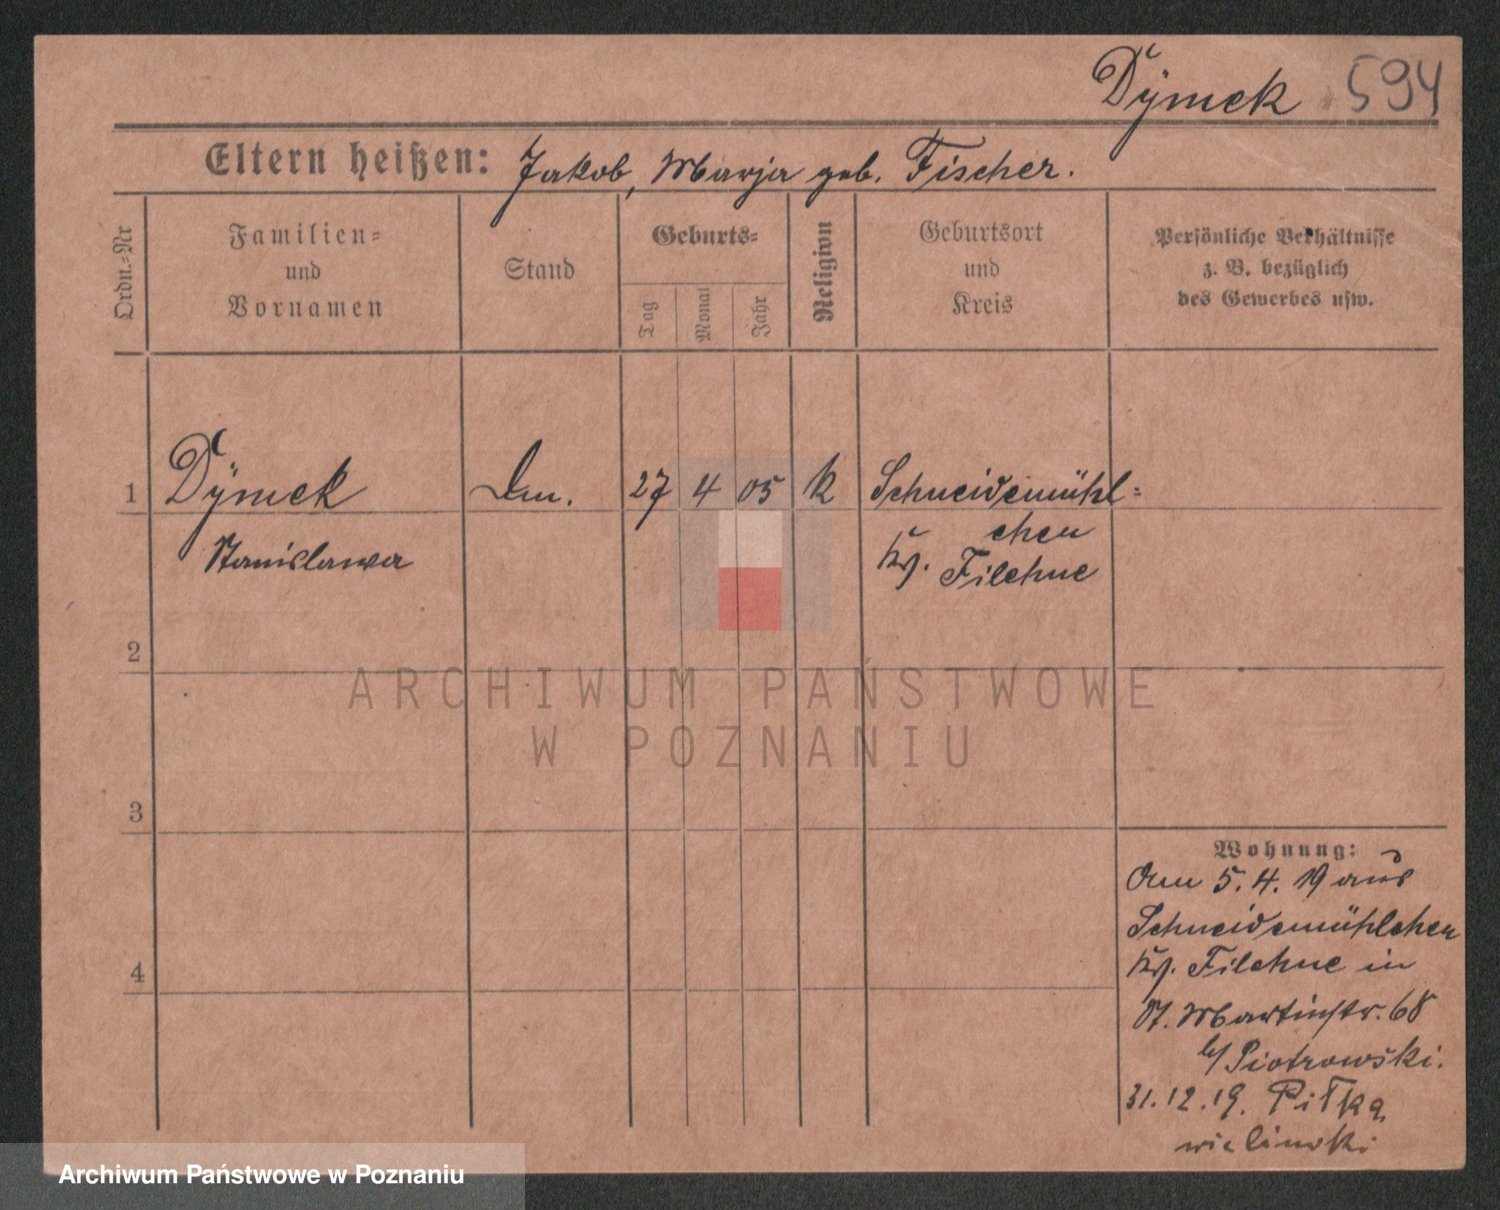 Dÿmek 594
Eltern heißen: Jakob, Marja geb. Fischer.
Ordn.-Nr
Familien-
und
Vornamen
Stand
Geburts-
Tag
Monat
Jahr
Religion
Geburtsort
und
Kreis
Persönliche Verhältnisse
z. B. bezüglich
des Gewerbes usw.
1 Dÿmek 27 4 05 k Schneidemühl-
chen
Stanislawa Kr. Filehne
2
3
4
Wohnung:
Am 5.4.19 aus
Schneidemühlchen
Kr. Filehne in
St. Martinstr. 68
b/ Piotrowski.
31.12.19. Piłka
ARCHIWUM PAŃSTWOWE
W POZNANIU
Archiwum Państwowe w Poznaniu